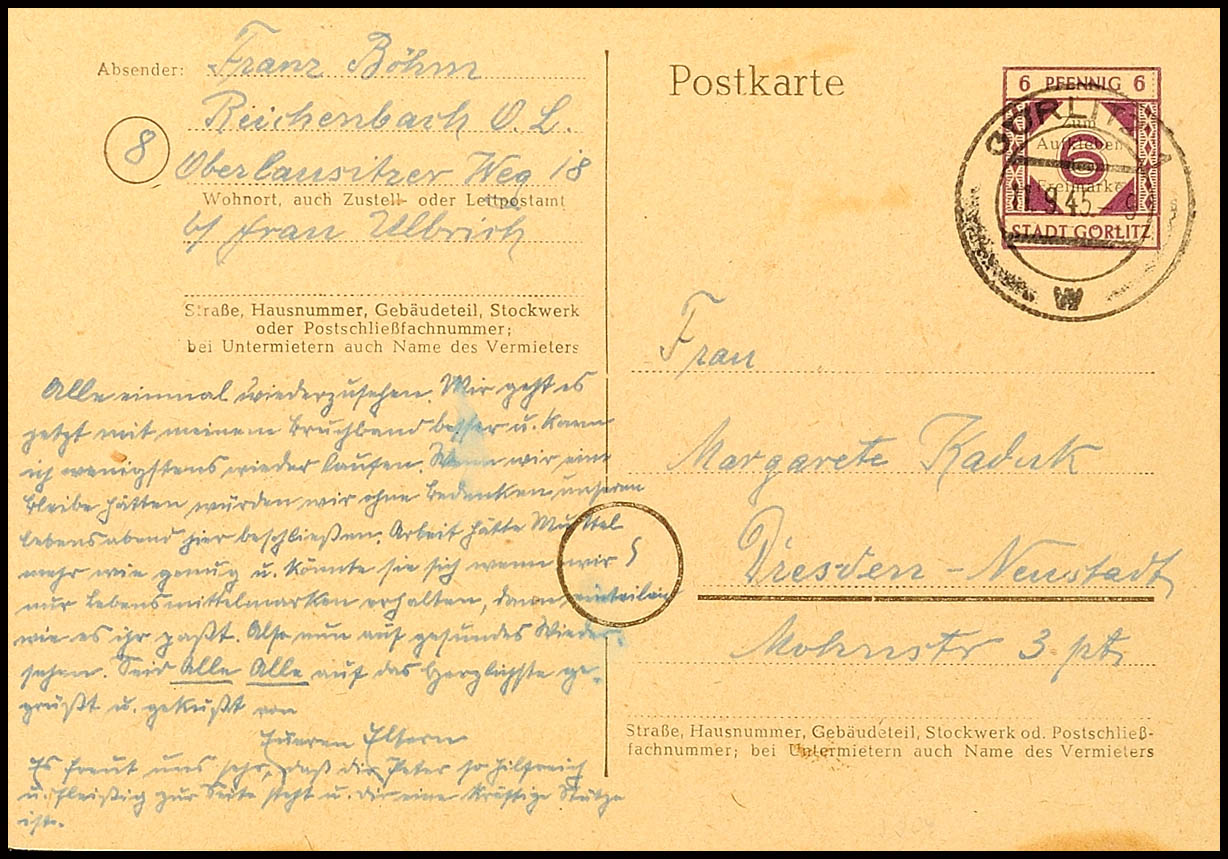 Absender: Franz Böhm
Reichenbach O. L.
8
Oberlausitzer Weg 18
Wohnort, auch Zustell- oder Leitpostamt
b/ Frau Ullrich
Straße, Hausnummer, Gebäudeteil, Stockwerk
oder Postschließfachnummer;
bei Untermietern auch Name des Vermieters
Alle einmal wiederzusehen. Mir geht es
jetzt mit meinem Bruchband besser u. kann
ich wenigstens wieder laufen. Wenn wir eine
Bleibe hätten würden wir ohne Bedenken unseren
Lebensabend hier beschließen. Arbeit hätte Muttel
mehr wie genug u. könnte sie sich wenn wir
nur Lebensmittelmarken erhalten, dann einteilen
wie es ihr paßt. Also nun auf gesundes Wieder-
sehen. Seid Alle Alle auf das Herzlichste ge-
grüßt u. geküßt von
Eueren Eltern
Es freut uns sehr, daß dir Peter so hilfreich
u. fleißig zur Seite steht u. Dir eine kräftige Stütze
ist.
Postkarte
6 PFENNIG 6
Zum
Aufkleben
6
Freimarke
STADT GÖRLITZ
GÖRLITZ
1.9.45
W
Frau
Margarete Kaduk
Dresden-Neustadt
Mohnstr 3 pt.
Straße, Hausnummer, Gebäudeteil, Stockwerk od. Postschließ-
fachnummer; bei Untermietern auch Name des Vermieters